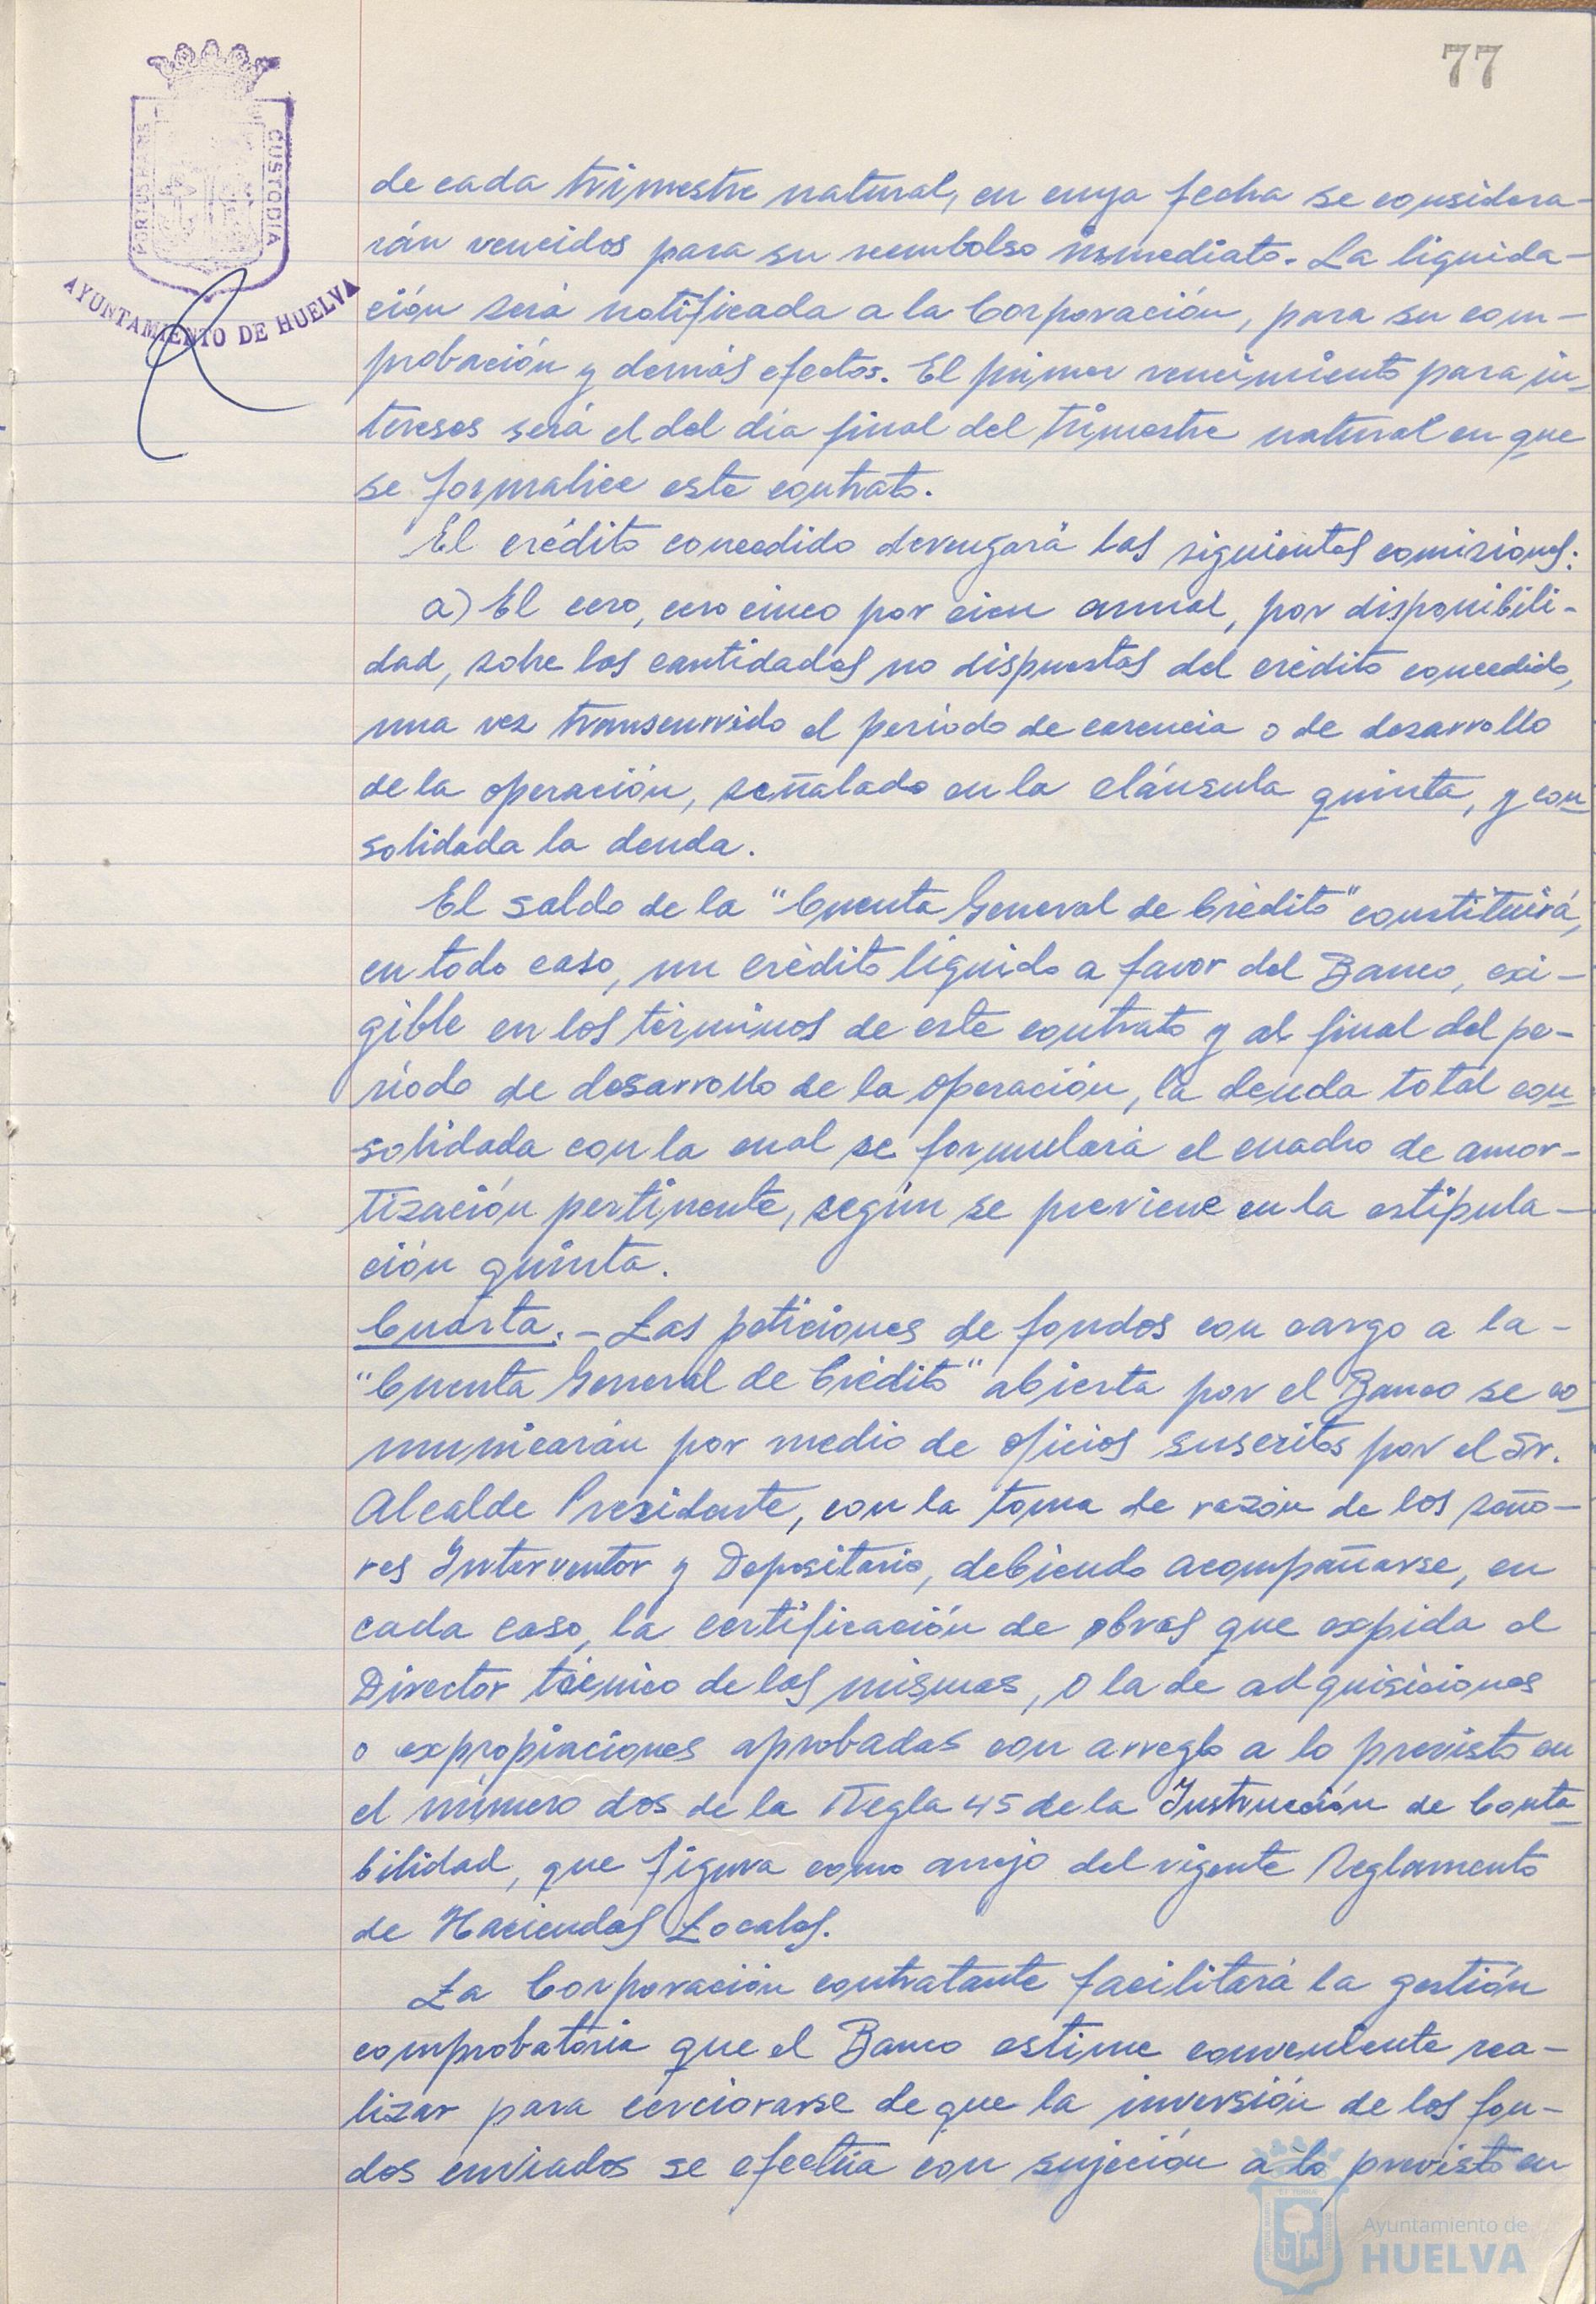 77
PORTUS MARIS
CUSTODIA
AYUNTAMIENTO DE HUELVA
de cada trimestre natural, en cuya fecha se considera-
rán vencidos para su reembolso inmediato. La liquida-
ción será notificada a la Corporación, para su com-
probación y demás efectos. El primer vencimiento para in-
tereses será el del día final del trimestre natural en que
se formalice este contrato.
El crédito concedido devengará las siguientes comisiones:
a) El cero, cero cinco por cien anual, por disponibili-
dad, sobre las cantidades no dispuestas del crédito concedido,
una vez transcurrido el periodo de carencia o de desarrollo
de la operación, señalado en la cláusula quinta, y con
solidada la deuda.
El saldo de la "Cuenta General de Crédito" constituirá,
en todo caso, un crédito líquido a favor del Banco, exi-
gible en los términos de este contrato y al final del pe-
ríodo de desarrollo de la operación, la deuda total con
solidada con la cual se formulará el cuadro de amor-
tización pertinente, según se previene en la estipula-
ción quinta.
Cuarta.- Las peticiones de fondos con cargo a la-
"Cuenta General de Crédito" abierta por el Banco se co
municarán por medio de oficios suscritos por el Sr.
Alcalde Presidente, con la toma de razón de los seño-
res Interventor y Depositario, debiendo acompañarse, en
cada caso, la certificación de obras que expida el
Director técnico de las mismas, o la de adquisiciones
o expropiaciones aprobadas con arreglo a lo previsto en
el número dos de la Regla 45 de la Instrucción de Conta
bilidad, que figura como anejo del vigente Reglamento
de Haciendas Locales.
La Corporación contratante facilitará la gestión
comprobatoria que el Banco estime conveniente rea-
lizar para cerciorarse de que la inversión de los fon-
dos enviados se efectúa con sujeción a lo previsto en
Ayuntamiento de
HUELVA